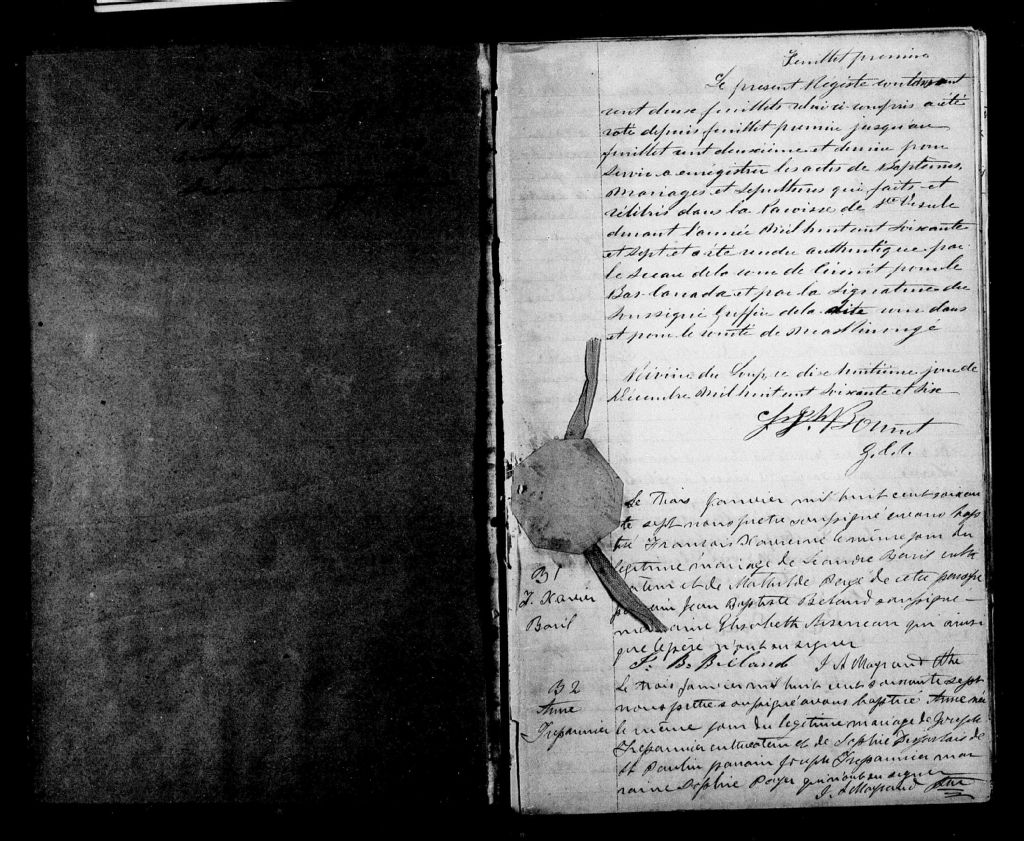 Feuillet premier
Le present Régistre contenant
cent deux feuillets celui ci compris a été
coté depuis feuillet premier jusqu'au
feuillet cent deuxième et dernier pour
servir a enrégistrer les actes de Baptemes,
Mariages et sépultures qui faits et
célébrés dans la Paroisse de Ste Ursule
durant l'année Mil huit cent soixante
et sept et a été rendu authentique par
le sceau de la cour de Circuit pour le
Bas-Canada et par la signature du
soussigné Greffier de la dite cour dans
et pour le comté de Maskinongé
Rivière du Loup ce dix huitième jour de
Décembre Mil huit cent soixante et six
Bournet
G.C.C.
Le trois Janvier mil huit cent soixan
te sept nous prêtre soussigné avons bap
tisé François Xavier né le même jour du
légitime mariage de Léandre Baril culti
vateur et de Mathilde de cette paroisse
parrain Jean Baptiste Béland soussigné
marraine Elisabeth qui ainsi
que le père n'ont su signer
J. B. Béland J A Mayrand Ptre
B 1
F. Xavier
Baril
B 2
Anne
Trepannier
Le trois Janvier mil huit cent soixante sept
nous prêtre soussigné avons baptisé Anne née
le même jour du légitime mariage de Joseph
Trepannier cultivateur et de Sophie de
St Paulin parrain Joseph Trepannier mar
raine Sophie qui n'ont su signer
J. A Mayrand Ptre